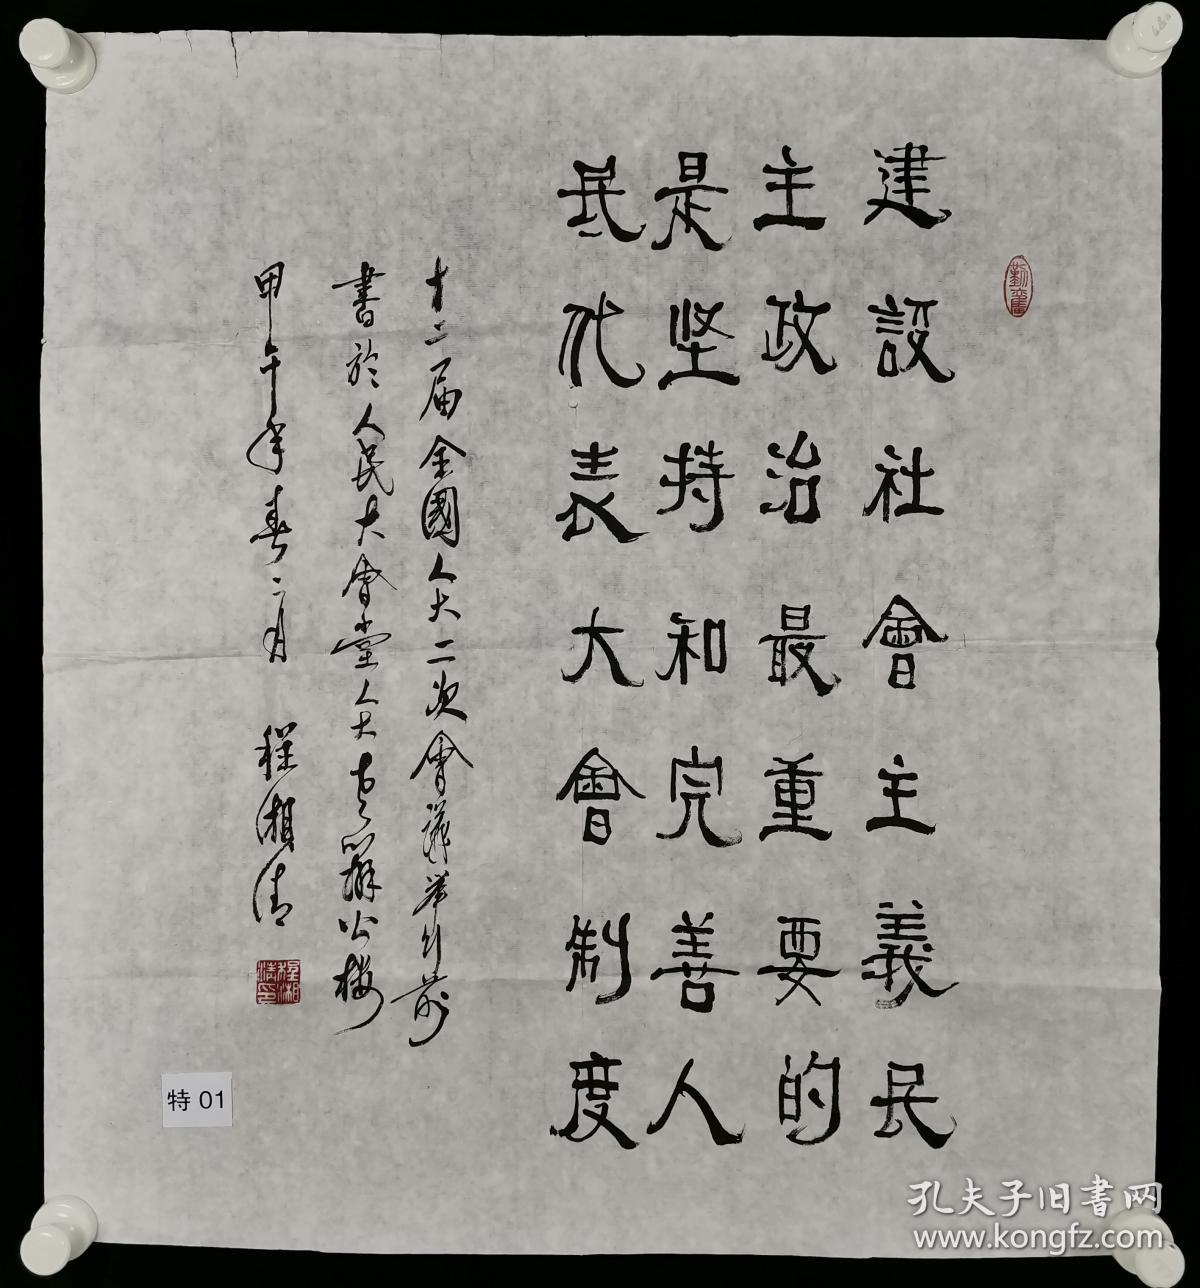 建設社會主義民
主政治最重要的
是坚持和完善人
民代表大會制度
十二届全國人大二次會議举行前
書於人民大會堂人大办公楼
甲午年春二月 程湘清
程湘清印
特 01
孔夫子旧書网
www.kongfz.com